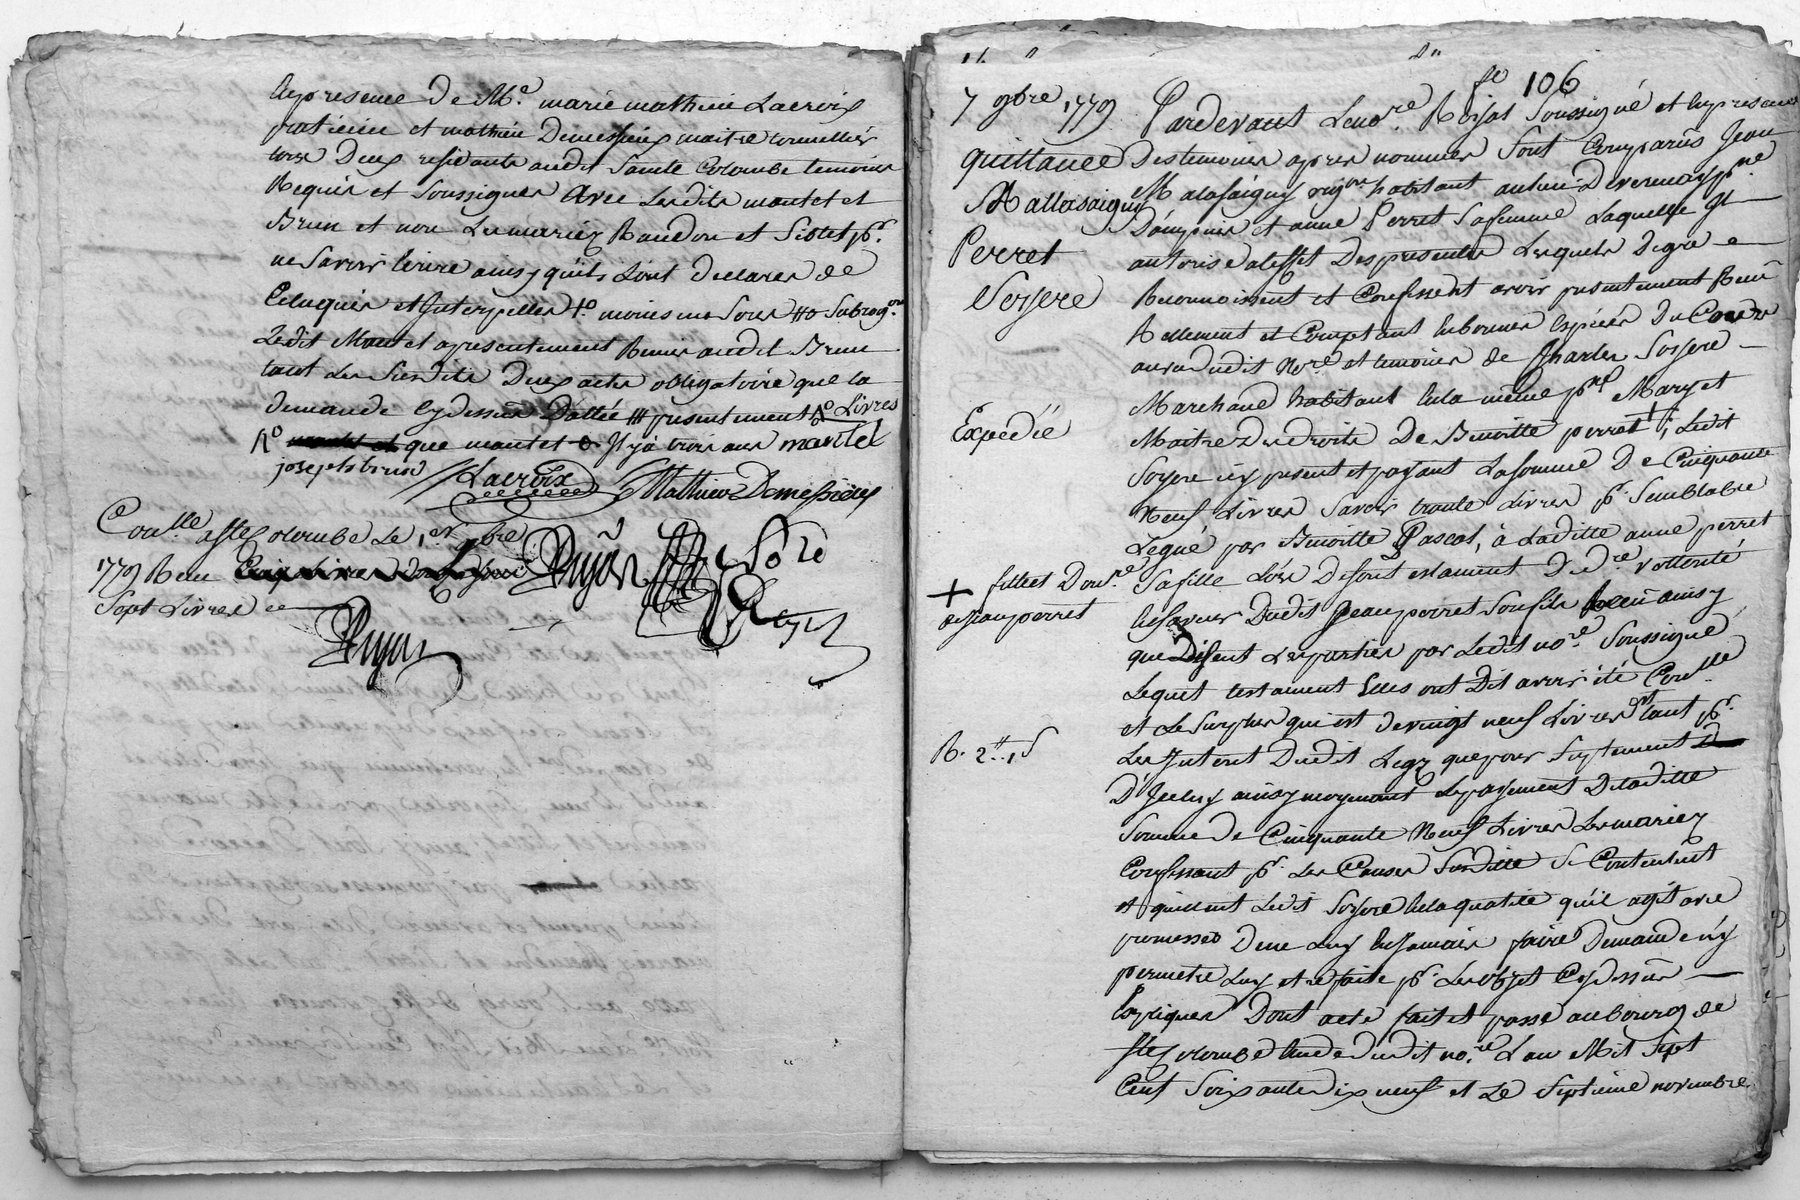 En presence de Me. marie mathieu Lacroix
praticien et mathieu Demessieux maitre tonnellier
tous Deux residants audit Sainte Colombe temoins
Requis et Soussignes avec Lesdits montet et
Brun et non Les mariez Baudon et pr.
ne Savoir Ecrire ainsy qu'ils L'ont declarés de
Ce Enquis et Interpelles moins une Sous Subrogn.
Ledit Montet apresentement Remis audit Brun
tant Les Susdits Deux actes obligatoire que la
demande cy dessus Dattée presentement Livres
que montet Il y a trois ans montet
joseph brun Lacroix Mathieu Demessieux
Conlle. a Ste Colombe Le 1er 9bre
1779 Reçu
Sept Livres
7 9bre 1779
quittance
Mallasaigny
Perret
Soyere
Expédié
+ fille et Donre.
de jean perret
R. 2tt. 1s
fo 106
Pardevant Le nore. Royal Soussigné et En presence
Des temoins apres nommes Sont Comparus Jean
Malasaigny habitant au lieu De pse.
D'ampuis et anne Perret Sa femme Laquelle Il
autorise a l'effet Des presentes Lesquels De gré
Reconnoissent et Confessent avoir presentement Reçu
Reellement et Comptant En bonnes Espèces Du Cours
au vu dudit Nore. et temoins de Charles Soyere
Marchand habitant En la même pse. Mary et
Maitre Des droits De Benoitte perret + ; Ledit
Soyere icy present et payant La Somme De Cinquante
Neuf Livres Savoir trante Livres pr. Semblable
Legué par Benoitte Pascal, à Laditte anne perret
Sa fille Lors De son testament De dre. vollonté
En faveur Dudit Jean perret Son fils Reçu ainsy
que Disent Les parties par Ledit nore. Soussigné
Lequel testament Elles ont Dit avoir été Conlle.
et Le Surplus qui est de vingt neuf Livres tant pr.
Les Interet Dudit Legz que pour Suplement
D'Iceluy ainsy moyenant Le payement De laditte
Somme de Cinquante Neuf Livres Les mariez
Confessent pr. Les Causes Susditte Se Contentent
et quittent Ledit Soyere En la qualité qu'il agit avec
promesse De ne Luy En Jamais faire Demande n'y
permetre Luy etre faite pr. Les objet Cy dessus
Expliques Dont acte fait et passé au bourg de
Ste Colombe Etude dudit nore. L'an Mil Sept
Cent Soixante dix neuf et Le Septieme novembre